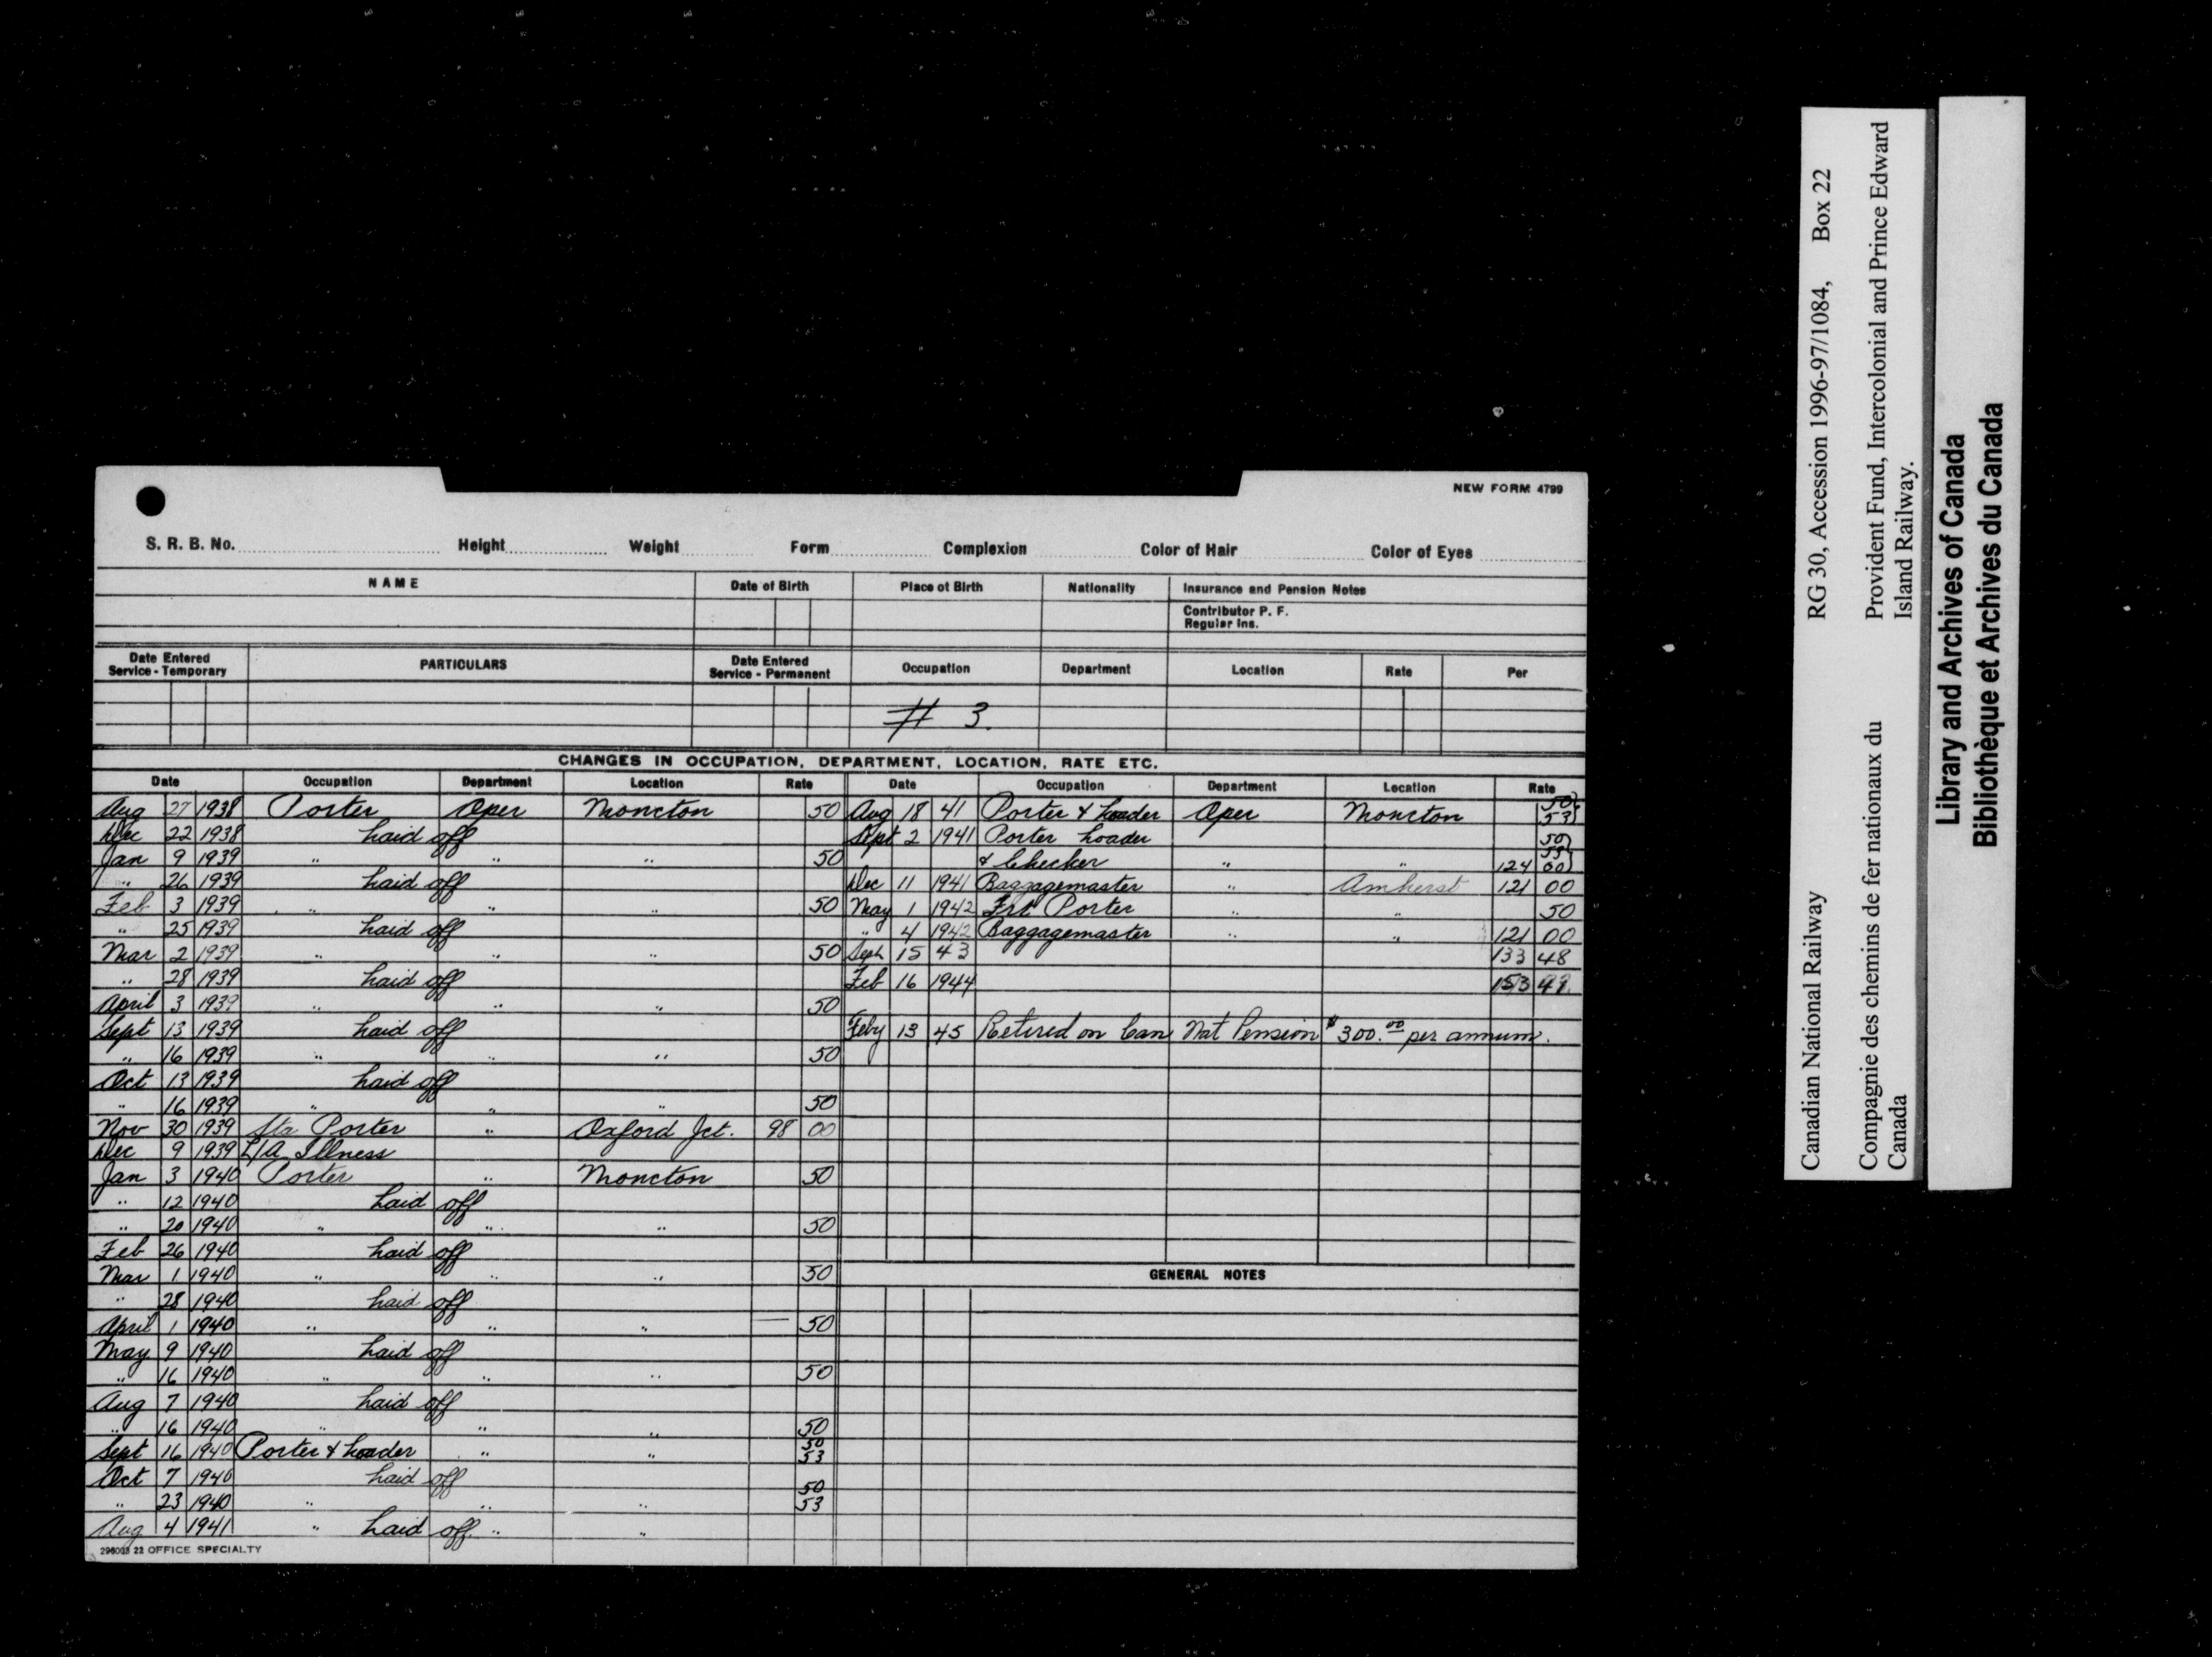 NEW FORM 4799
S. R. B. No. Height Weight Form Complexion Color of Hair Color of Eyes
NAME Date of Birth Place of Birth Nationality Insurance and Pension Notes
Contributor P. F.
Regular Ins.
Date Entered Service - Temporary PARTICULARS Date Entered Service - Permanent Occupation Department Location Rate Per
# 3.
CHANGES IN OCCUPATION, DEPARTMENT, LOCATION, RATE ETC.
Date Occupation Department Location Rate
Aug 27 1938 Porter Oper Moncton 50
Dec 22 1938 Laid off
Jan 9 1939 " " " 50
" 26 1939 Laid off
Feb 3 1939 " " " 50
" 25 1939 Laid off
Mar 2 1939 " " " 50
" 28 1939 Laid off
April 3 1939 " " " 50
Sept 13 1939 Laid off
" 16 1939 " " " 50
Oct 13 1939 Laid off
" 16 1939 " " " 50
Nov 30 1939 Sta Porter " Oxford Jct. 98 00
Dec 9 1939 L/A Illness
Jan 3 1940 Porter " Moncton 50
" 12 1940 Laid off
" 20 1940 " " " 50
Feb 26 1940 Laid off
Mar 1 1940 " " " 50
" 28 1940 Laid off
April 1 1940 " " " 50
May 9 1940 Laid off
" 16 1940 " " " 50
Aug 7 1940 Laid off
" 16 1940 " " " 50
Sept 16 1940 Porter & Loader " " 50 53
Oct 7 1940 Laid off
" 23 1940 " " " 50 53
Aug 4 1941 " Laid off " "
296003 22 OFFICE SPECIALTY
Date Occupation Department Location Rate
Aug 18 41 Porter & Loader Oper Moncton 50 53
Sept 2 1941 Porter Loader 50
& Checker " " 53 124 00
Dec 11 1941 Baggagemaster " Amherst 121 00
May 1 1942 Frt Porter " " 50
" 4 1942 Baggagemaster " " 121 00
Sept 15 43 133 48
Feb 16 1944 153 49
Feby 13 45 Retired on Can Nat Pension $300.00 per annum.
GENERAL NOTES
Canadian National Railway RG 30, Accession 1996-97/1084, Box 22
Compagnie des chemins de fer nationaux du Canada
Provident Fund, Intercolonial and Prince Edward Island Railway.
Library and Archives of Canada
Bibliothèque et Archives du Canada